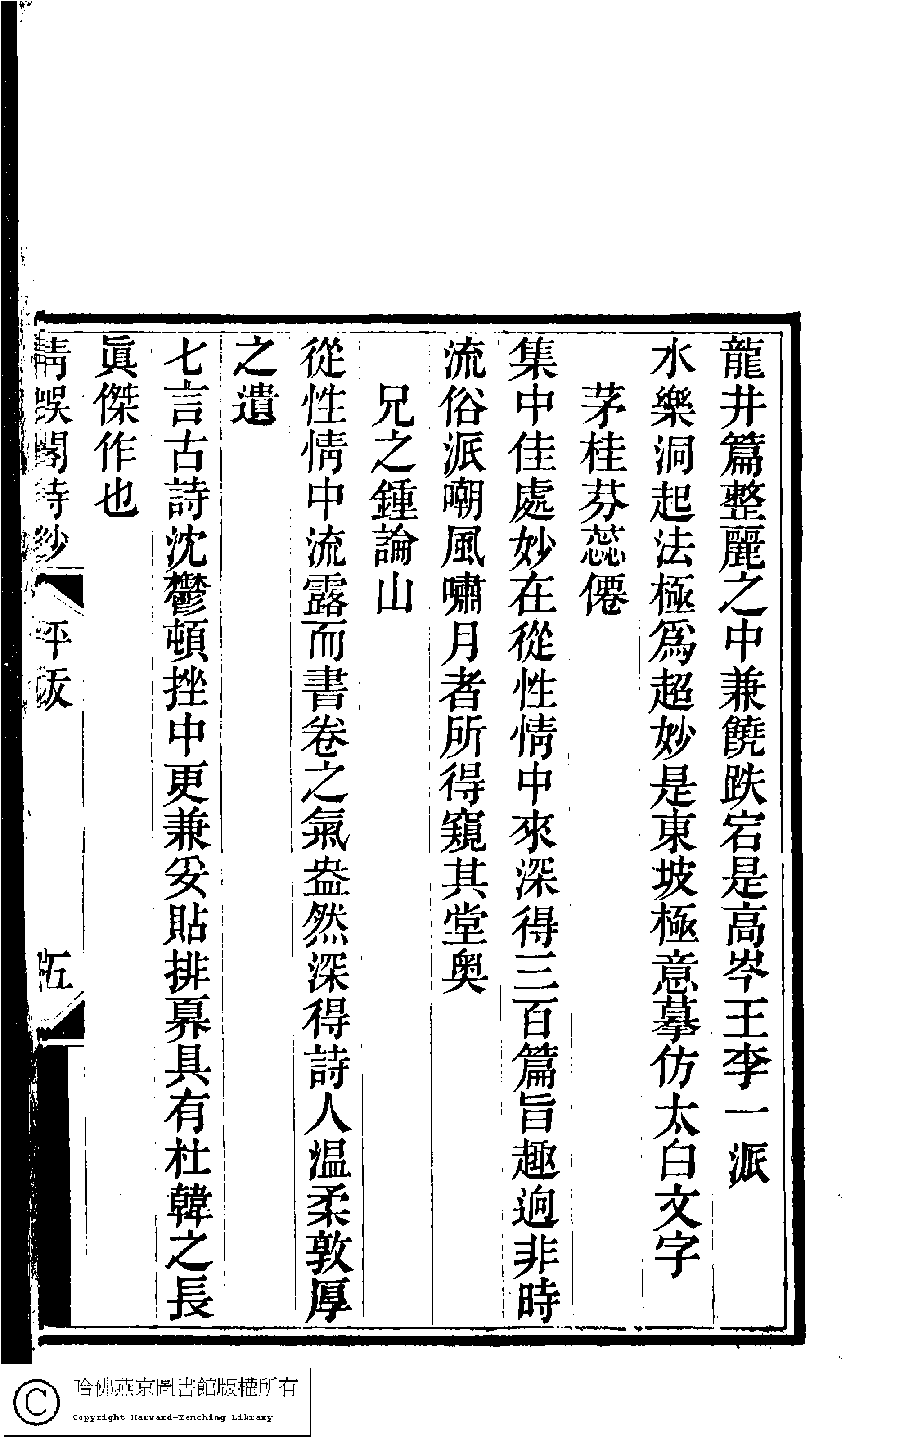 龍井篇整麗之中兼饒跌宕是高岑王李一派
水樂洞起法極爲超妙是東坡極意摹仿太白文字
茅桂芬蕊僊
集中佳處妙在從性情中來深得三百篇旨趣逈非時
流俗派嘲風嘯月者所得窺其堂奥
兄之鍾論山
從性情中流露而書卷之氣盎然深得詩人温柔敦厚
之遺
七言古詩沈鬱頓挫中更兼妥貼排奡具有杜韓之長
眞傑作也
清娛閣詩鈔 評跋 五
哈佛燕京圖書館版權所有
Copyright Harvard-Yenching Library